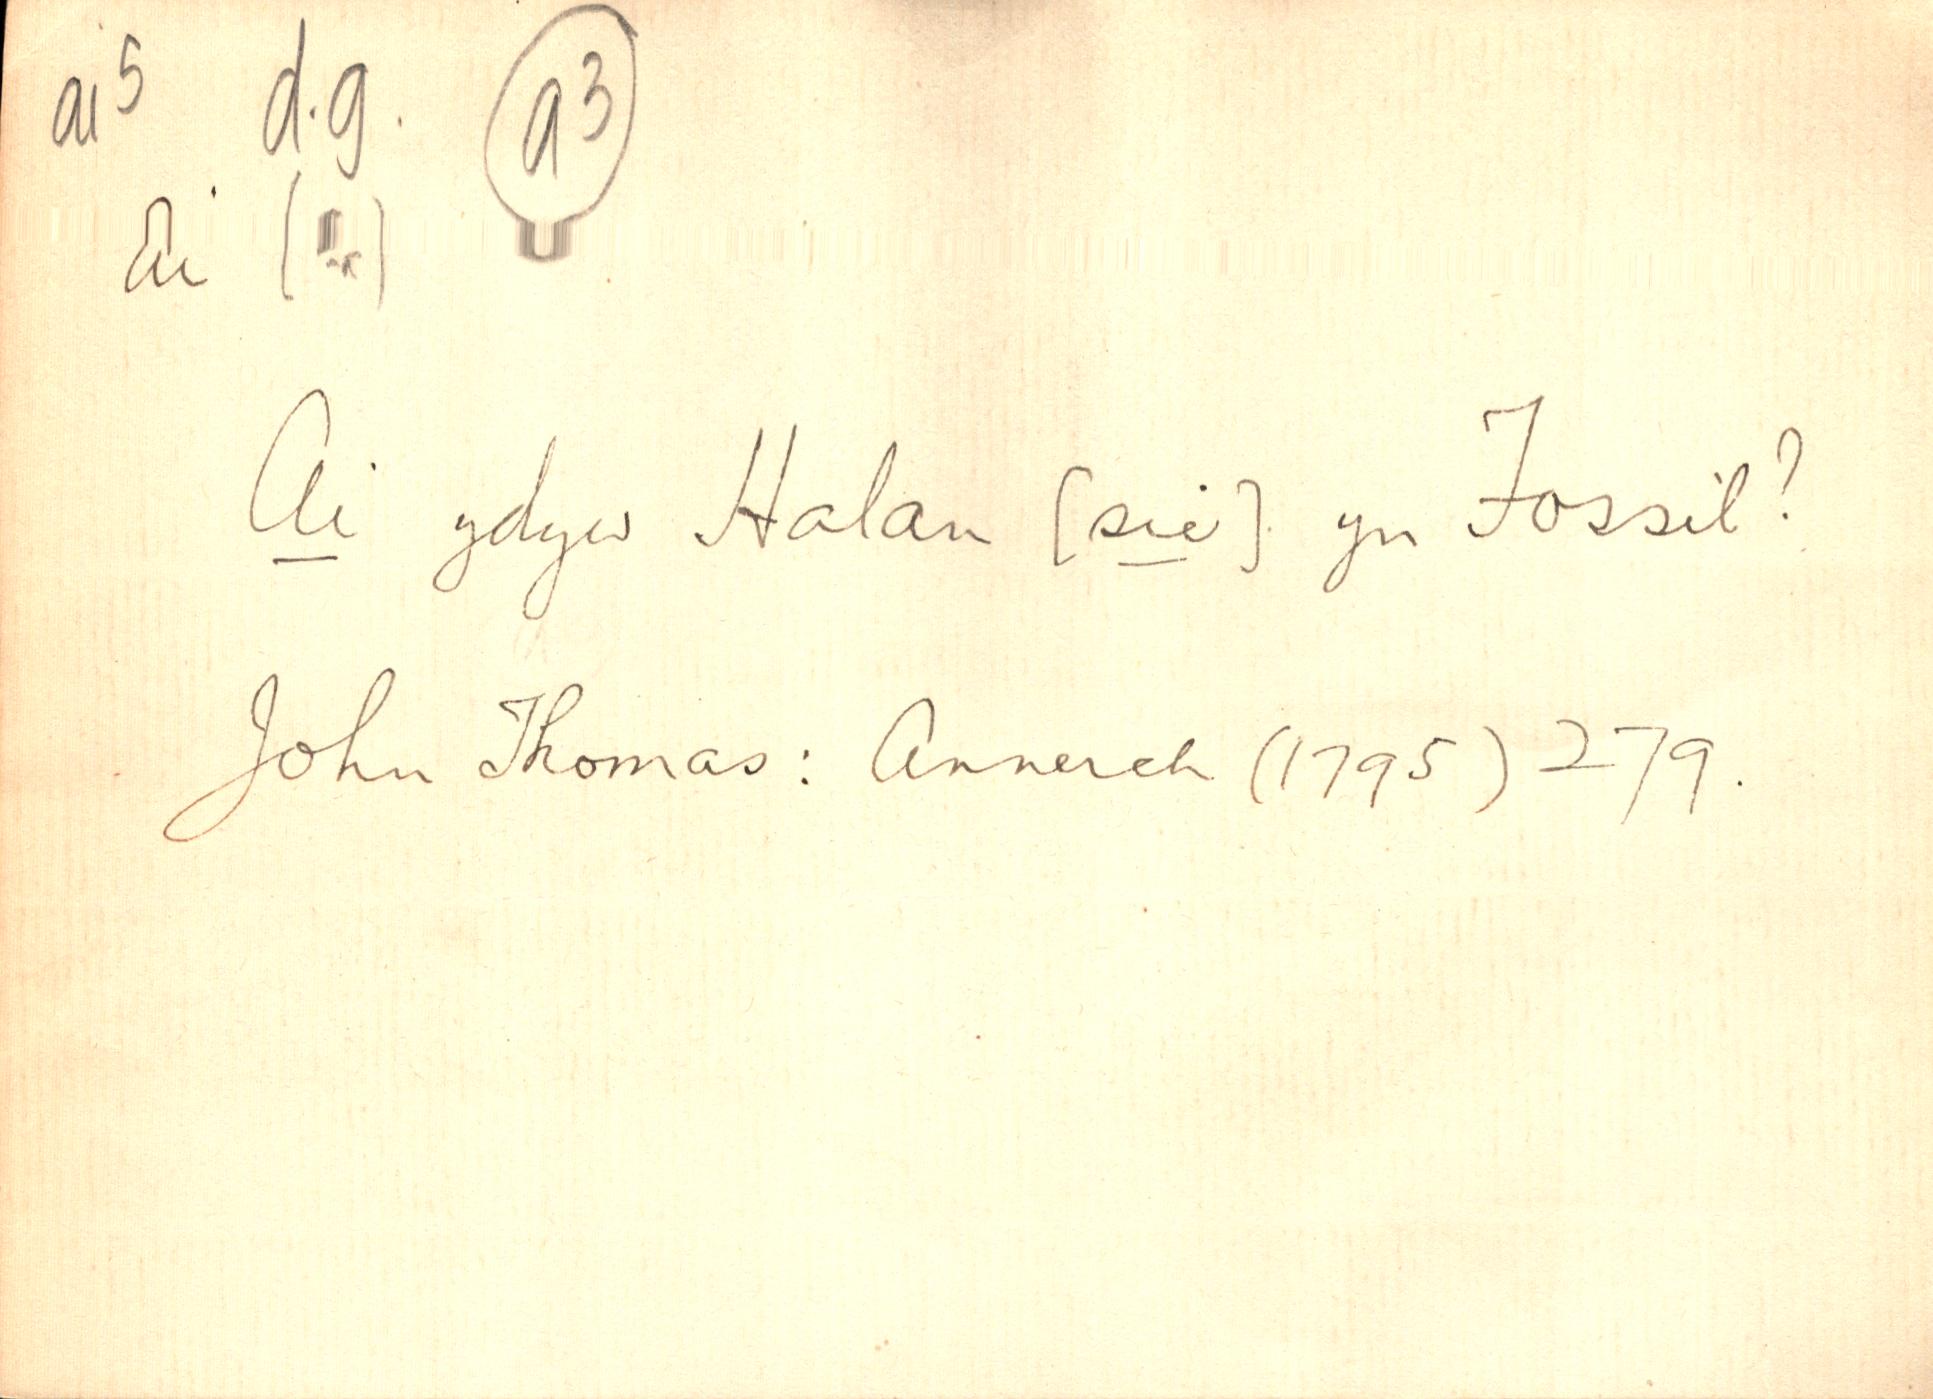 ai⁵ d.g. a³
Ai
Ai ydyw Halan [sic] yn Fossil?
John Thomas: Annerch (1795) 279.